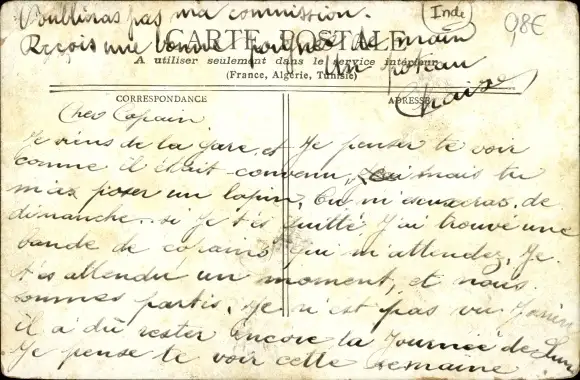 oublieras pas ma commission.
Inde
98€
Reçois une bonne poignée de main
CARTE POSTALE
Un poteau
A utiliser seulement dans le service intérieur
(France, Algérie, Tunisie)
CORRESPONDANCE
ADRESSE
Cher Copain
Je viens de la gare, et Je penser te voir
comme il était convenu, mais tu
m'as poser un lapin, Tu m'excuseras, de
dimanche. si Je t'es quitté J'ai trouvé une
bande de copains qui m'attendez, Je
t'es attendu un moment, et nous
sommes partis, Je n'est pas vu
il a dû rester encore la Journée de
Je pense te voir cette semaine